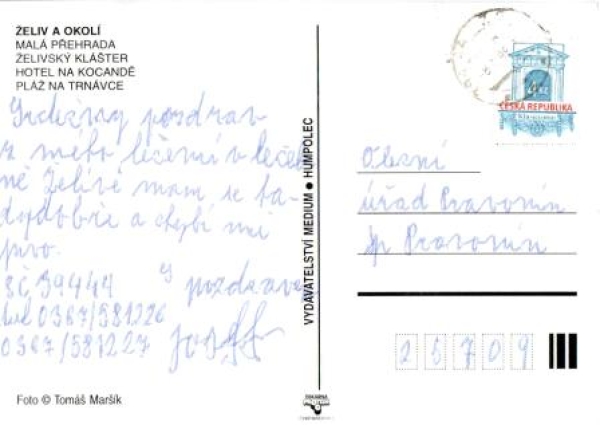 ŽELIV A OKOLÍ
MALÁ PŘEHRADA
ŽELIVSKÝ KLÁŠTER
HOTEL NA KOCANDĚ
PLÁŽ NA TRNÁVCE
Srdečný pozdrav
z mého léčení v léčeb
ně Želivě mám se ta
dydobře a chybí mi
pivo.
SČ 39444 S pozdravem
tel 0367/581226
0367/581227 Josef
Foto © Tomáš Maršík
VYDAVATELSTVÍ MEDIUM ● HUMPOLEC
4 Kč
ČESKÁ REPUBLIKA
Obecní
úřad Pravonín
Pravonín
25709